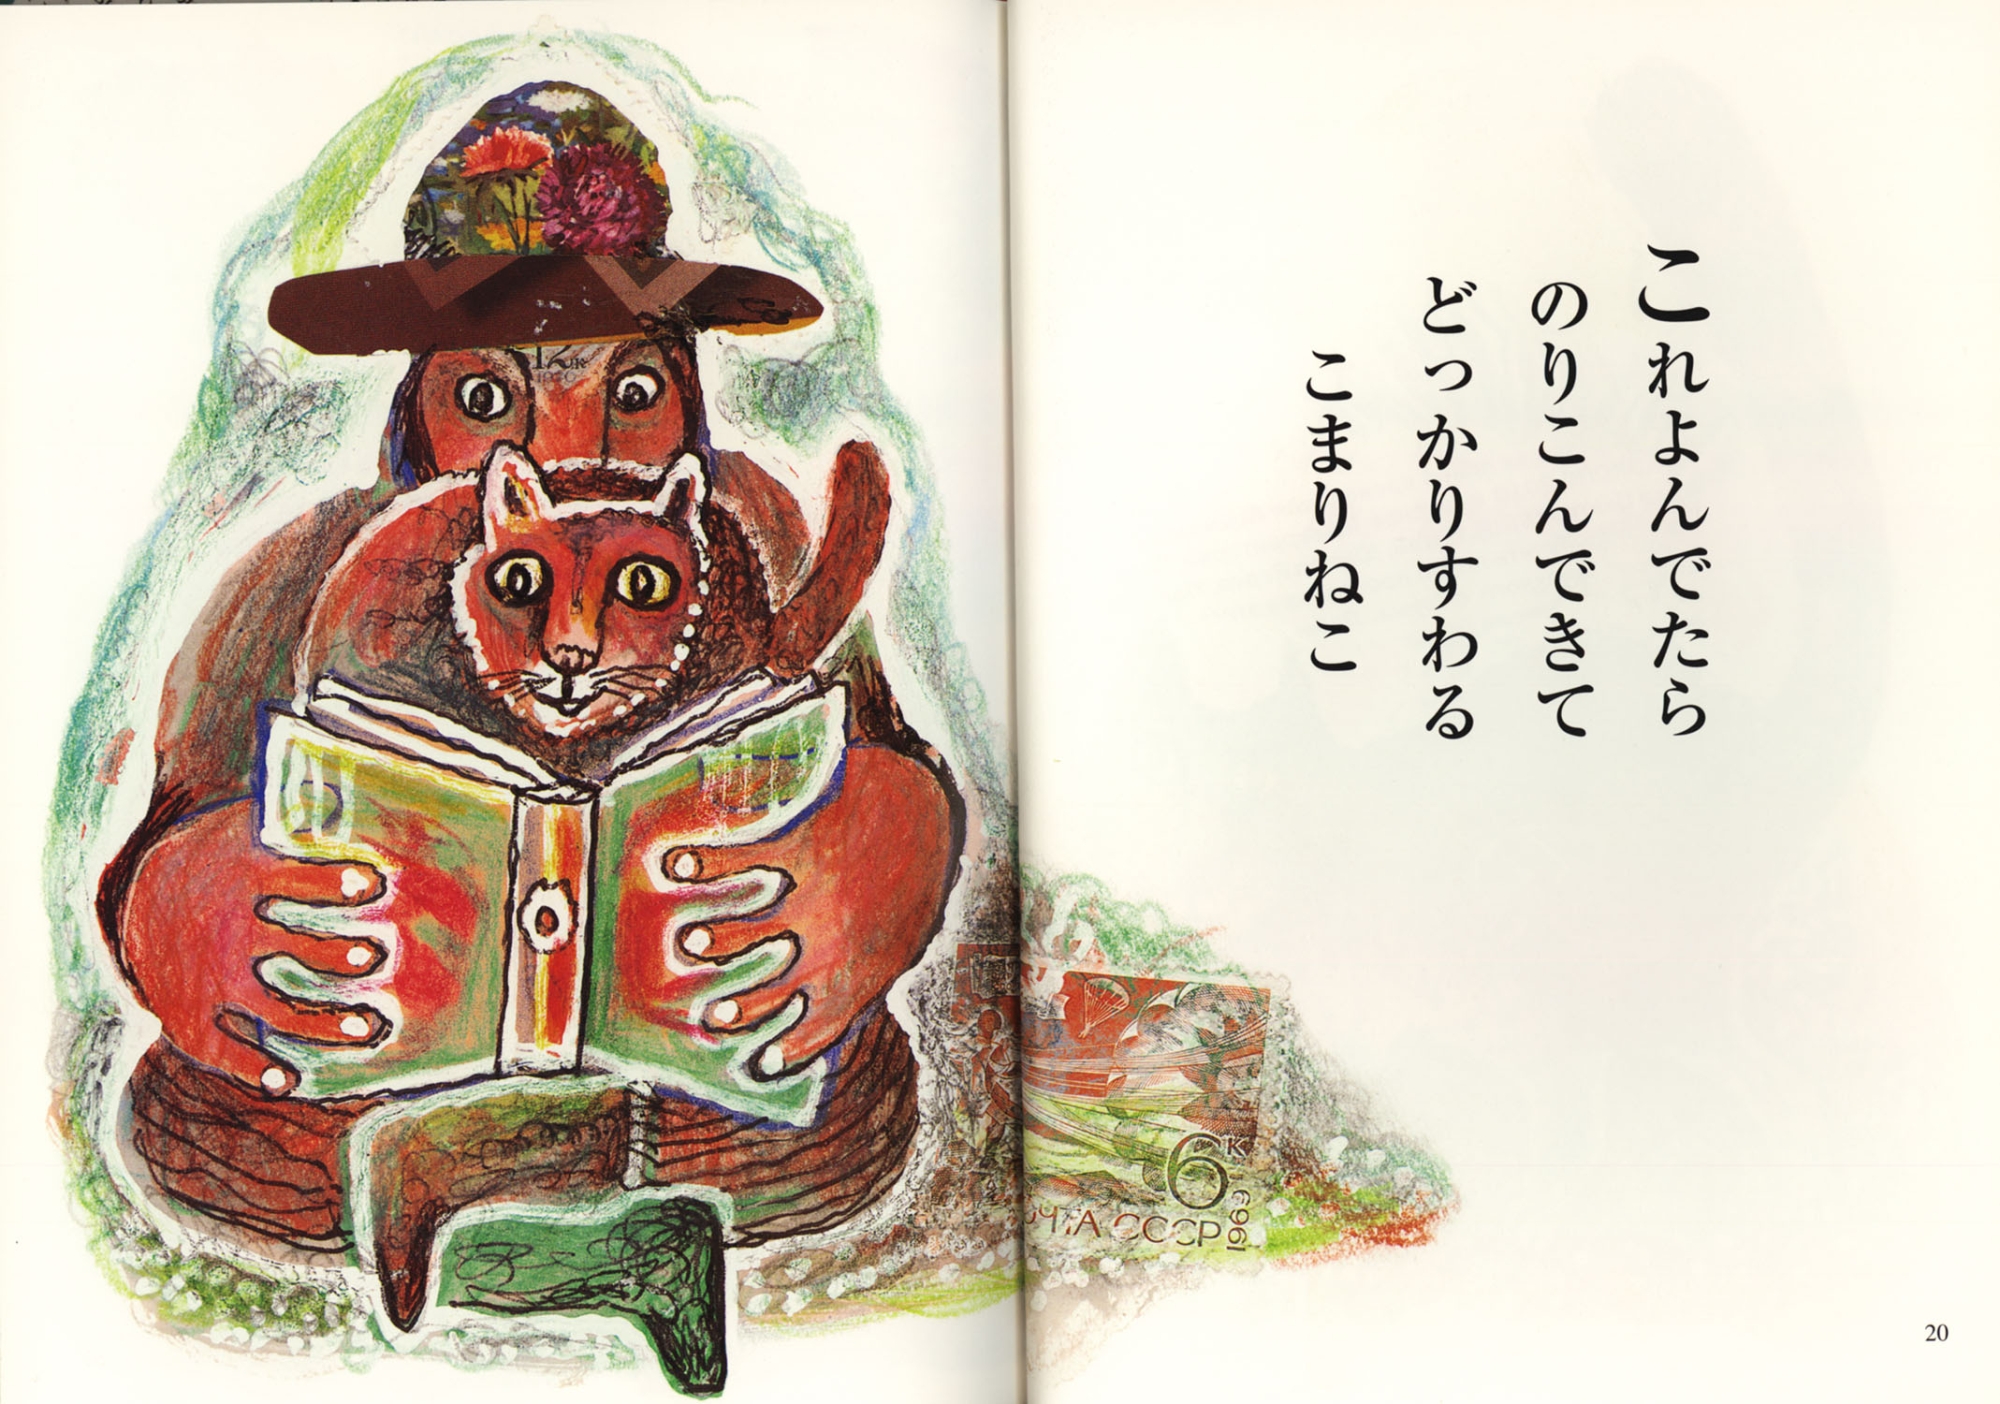 これよんでたら
のりこんできて
どっかりすわる
こまりねこ
12к
6к
ЧТА СССР
1969
20